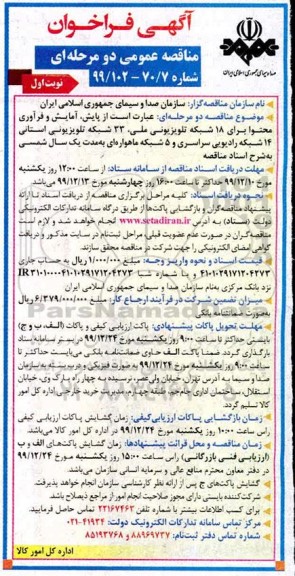 آگهی فراخوان
مناقصه عمومی دو مرحله‌ای
شماره ۷۰/۷-۹۹/۱۰۲
نوبت اول
صدا و سیمای جمهوری اسلامی ایران
نام سازمان مناقصه‌گزار: سازمان صدا و سیمای جمهوری اسلامی ایران
موضوع مناقصه دو مرحله‌ای: عبارت است از پایش، آمایش و فرآوری
محتوا برای ۱۸ شبکه تلویزیونی ملی، ۳۳ شبکه تلویزیونی استانی
۱۴ شبکه رادیویی سراسری و ۵ شبکه ماهواره‌ای به‌مدت یک سال شمسی
به‌شرح اسناد مناقصه
مهلت دریافت اسناد مناقصه از سامانه ستاد: از ساعت ۱۲:۰۰ روز یکشنبه
مورخ ۹۹/۱۲/۱۰ حداکثر تا ساعت ۱۶:۰۰ روز چهارشنبه مورخ ۹۹/۱۲/۱۳ می‌باشد
نحوه دریافت اسناد: کلیه مراحل برگزاری مناقصه از دریافت اسناد تا ارائه
پیشنهاد مناقصه‌گران و بازگشایی پاکت‌ها از طریق درگاه سامانه تدارکات الکترونیکی
دولت (ستاد) به آدرس www.setadiran.ir انجام خواهد شد و لازم است
مناقصه‌گران در صورت عدم عضویت قبلی، مراحل ثبت‌نام در سایت مذکور و دریافت
گواهی امضای الکترونیکی را جهت شرکت در مناقصه محقق سازند.
قیمت اسناد و نحوه واریز وجه: مبلغ ۱/۰۰۰/۰۰۰ ریال به حساب جاری
نزد بانک مرکزی به‌نام سازمان صدا و سیمای جمهوری اسلامی ایران
میزان تضمین شرکت در فرآیند ارجاع کار: مبلغ ۶/۳۷۹/۰۰۰/۰۰۰ ریال
به‌صورت ضمانتنامه بانکی
مهلت تحویل پاکات پیشنهادی: پاکت ارزیابی کیفی و پاکات (الف، ب و ج)
بایستی حداکثر تا ساعت ۹:۰۰ روز یکشنبه مورخ ۹۹/۱۲/۲۴ در بستر سامانه ستاد
بارگذاری گردد. ضمناً پاکت الف حاوی ضمانتنامه بانکی می‌بایست حداکثر تا
ساعت ۹:۰۰ روز یکشنبه مورخ ۹۹/۱۲/۲۴ به صورت فیزیکی و در بسته به سازمان
صدا و سیما به آدرس تهران، خیابان ولی‌عصر، نرسیده به چهار راه پارک وی، خیابان
استقلال، ساختمان اداری جام‌جم، طبقه چهارم، مدیریت خرید خارجی اداره کل امور
کالا تسلیم گردد.
زمان بازگشایی پاکات ارزیابی کیفی: زمان گشایش پاکات ارزیابی کیفی
راس ساعت ۱۰:۰۰ روز یکشنبه مورخ ۹۹/۱۲/۲۴ در اداره کل امور کالا می‌باشد.
زمان مناقصه و محل قرائت پیشنهادها: زمان گشایش پاکت‌های الف و ب
(ارزیابی فنی بازرگانی) راس ساعت ۱۵:۰۰ روز یکشنبه مورخ ۹۹/۱۲/۲۴
در دفتر معاون محترم منافع عالی و سرمایه انسانی سازمان می‌باشد.
گشایش پاکت‌های ج پس از ارائه نظر کارشناسی سازمان انجام خواهد پذیرفت.
شرکت‌کننده بایستی دارای مجوز صلاحیت انجام امور از مراجع ذیصلاح باشد.
برای کسب اطلاعات بیشتر با شماره تلفن ۲۲۱۶۷۴۶۳ تماس حاصل فرمایید.
مرکز تماس سامانه تدارکات الکترونیک دولت: ۰۲۱-۴۱۹۳۴
دفتر ثبت نام: ۸۸۹۶۹۷۳۷ و ۸۵۱۹۳۷۶۸
اداره کل امور کالا